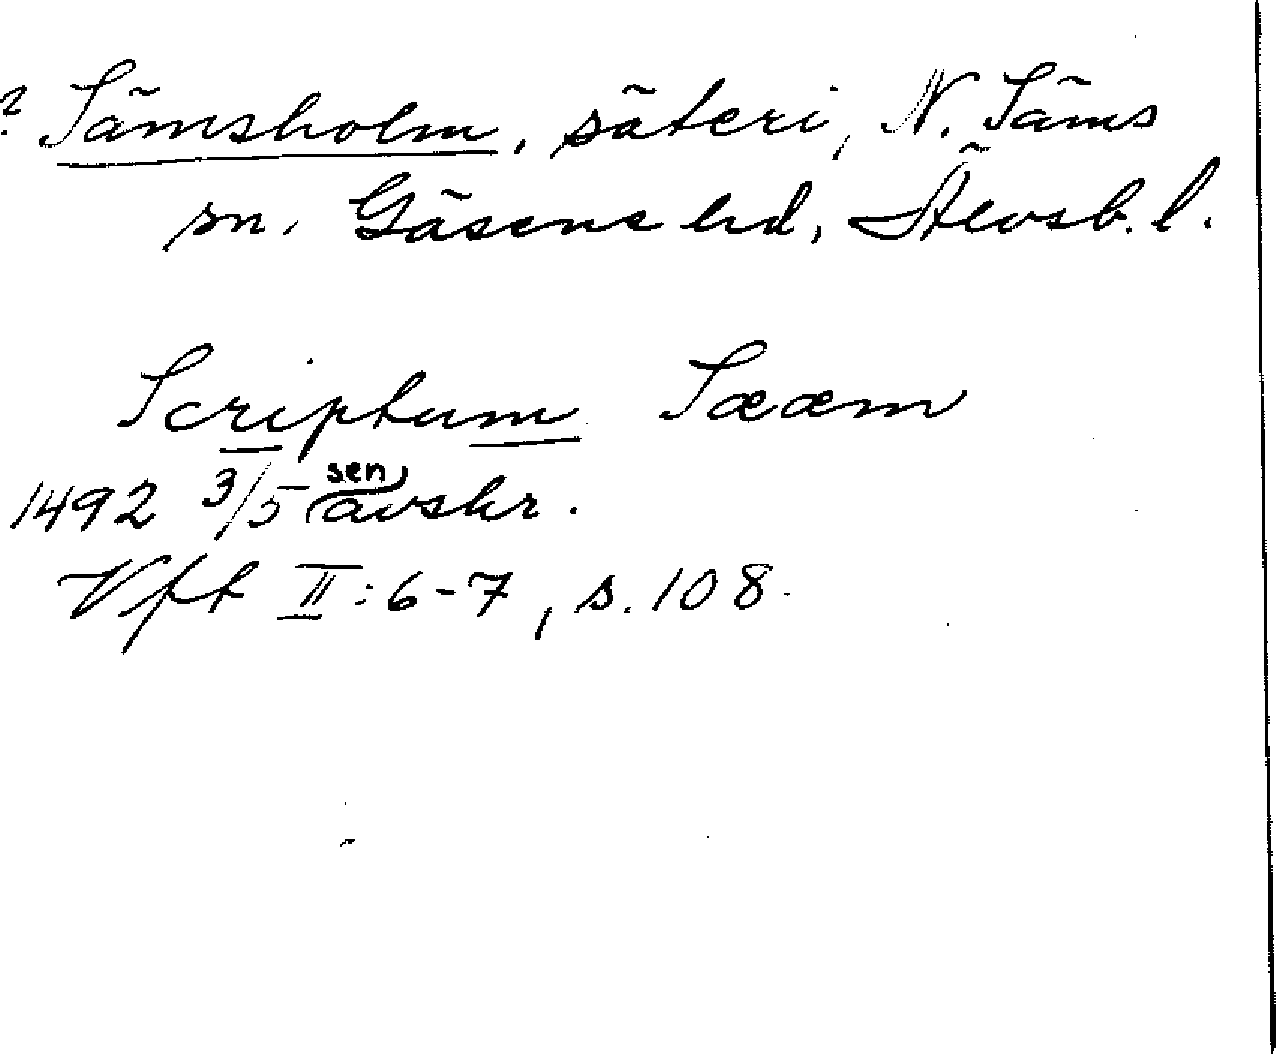 ? Sämsholm, säteri, N. Säms
sn. Gäsene hd, Älvsb. l.
Scriptum Sææm
1492 3/5 sen avskr.
Vft II:6-7, s. 108